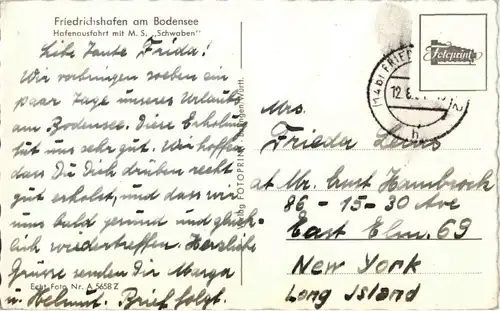 Friedrichshafen am Bodensee
Hafenausfahrt mit M. S. „Schwaben"
Liebe Tante Frida!
Wir verbringen soeben ein
paar Tage unseres Urlaubs
am Bodensee. Diese Erholung
tut uns sehr gut. Wir hoffen
dass Du Dich drüben recht
gut erholst, und dass wir
uns bald gesund und glück-
lich wiedertreffen. Herzliche
Grüsse senden Dir Marga
u. Helmut. Brief folgt.
Echt Foto Nr. A 5658 Z
FOTOPRINT
Fotoprint
(14b) FRIED
12.8.
h
Mrs.
Frieda
at Mr. Ernst Hambrock
86-15-30 Ave
East Elm. 69
New York
Long Island